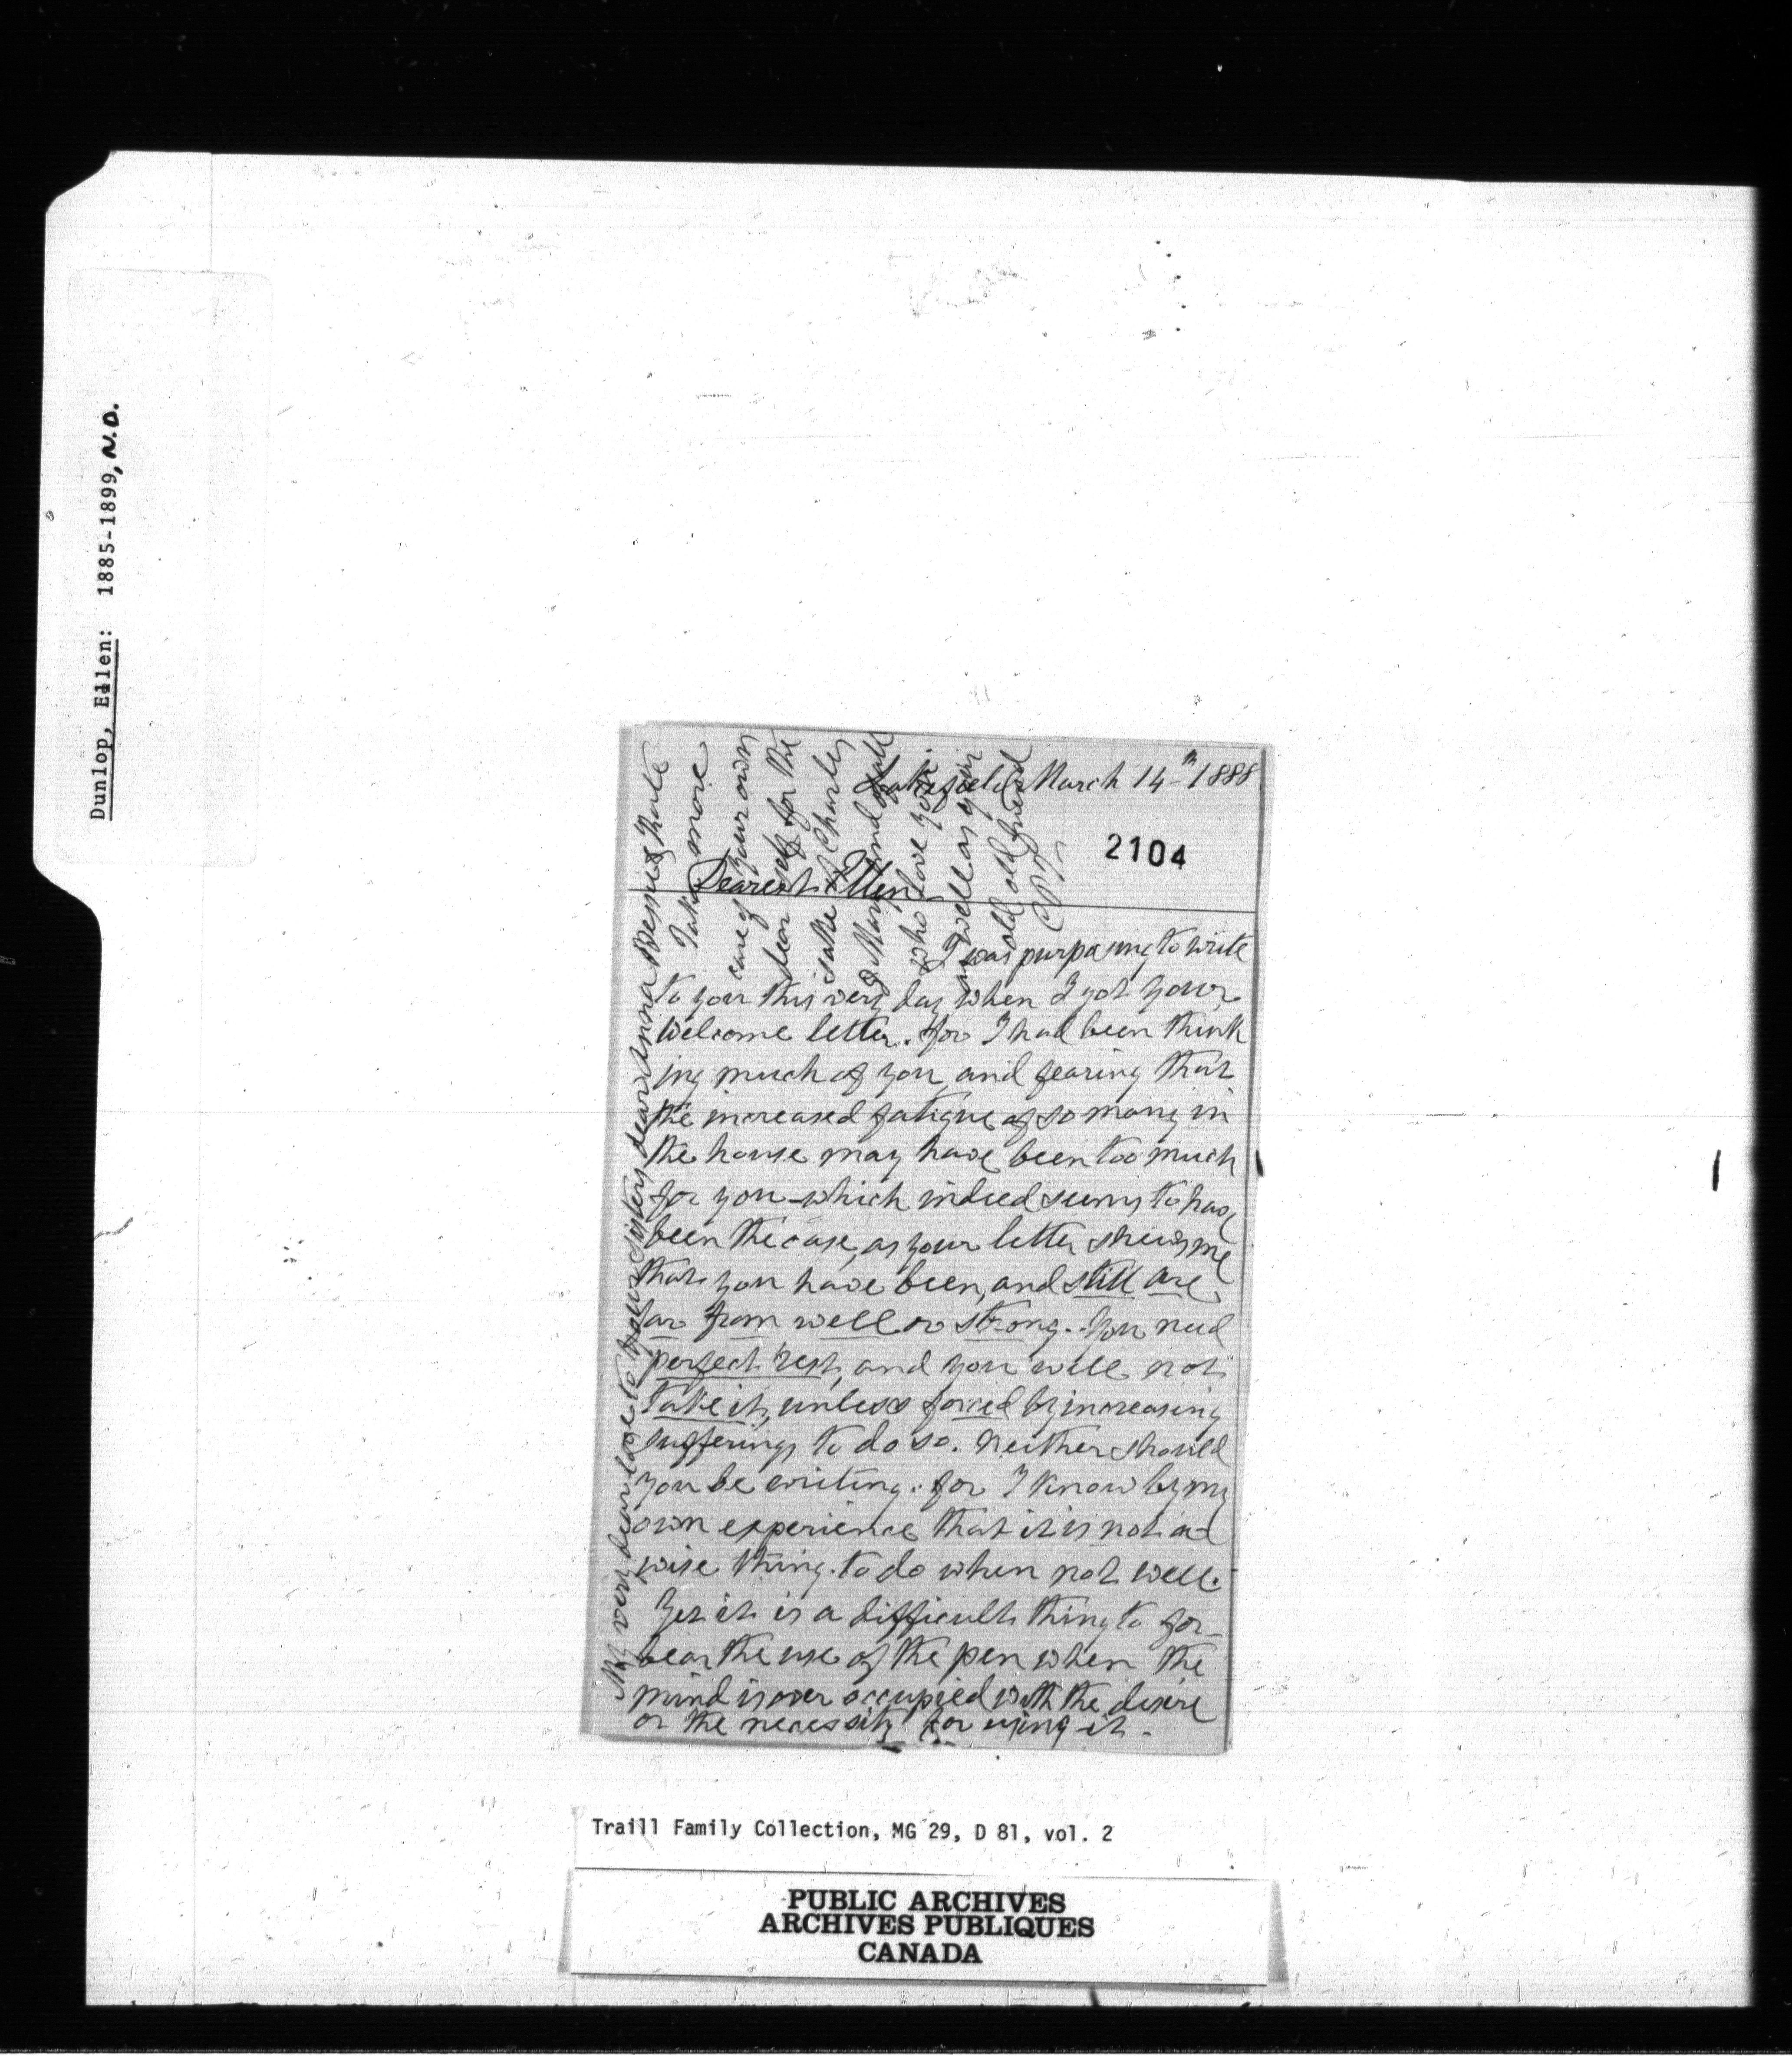 Dunlop, Ellen: 1885-1899, N.D.
Lakefield March 14th 1888
2104
Dearest Ellen
I was purposing to write
to you this very day when I got your
welcome letter. for I had been think
ing much of you and fearing that
the increased fatigue of so many in
the house may have been too much
for you - which indeed seems to have
been the case, as your letter shews me
that you have been, and still are
far from well or strong. You need
perfect rest, and you will not
take it, unless forced by increasing
sufferings to do so. Neither should
you be writing. for I know by my
own experience that it is not a
wise thing to do when not well.
Yet it is a difficult thing to for-
bear the use of the pen when the
mind is over occupied with the desire
or the necessity for using it -
My very dear love to your sisters dear Anna Bessie &
Take more
care of your own
dear self for the
sake of Charley
& Mary and all
who love you
as well as your
old old friend
CPT
Traill Family Collection, MG 29, D 81, vol. 2
PUBLIC ARCHIVES
ARCHIVES PUBLIQUES
CANADA